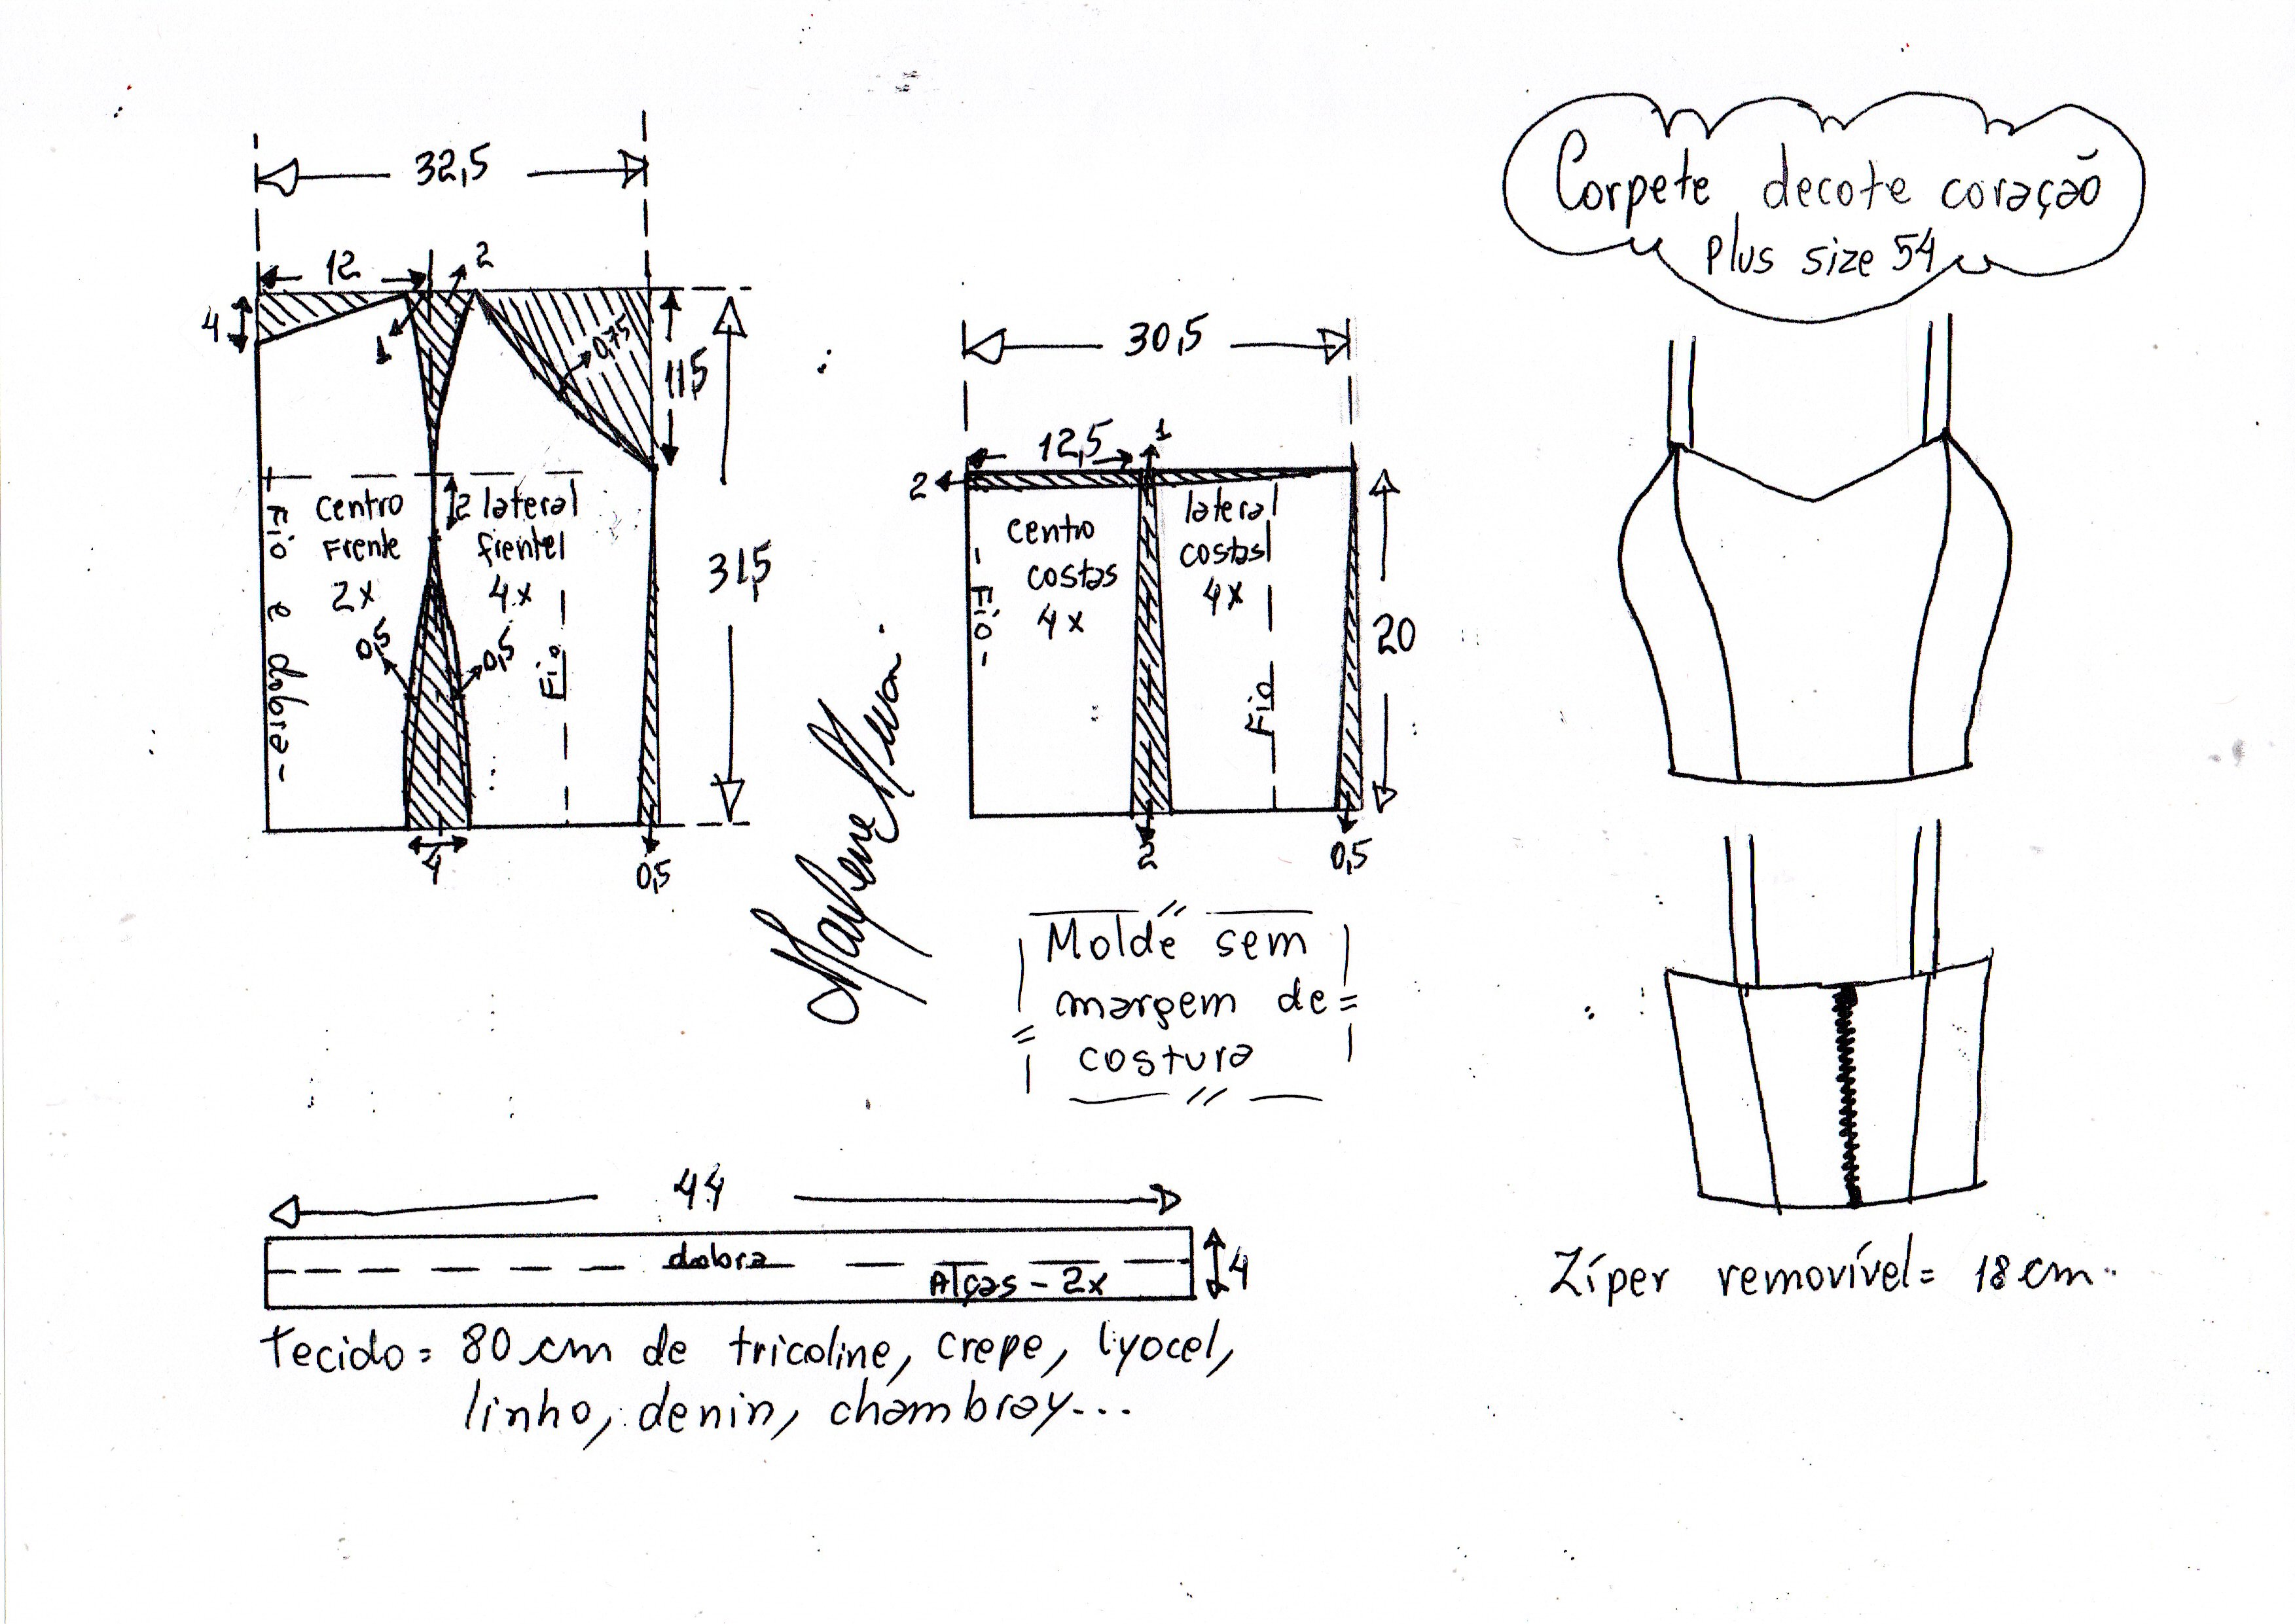 Corpete decote coração
plus size 54
32,5
12
2
4
1
0,75
11,5
31,5
Fio e dobra -
centro
Frente
2x
2
lateral
frente
4x
0,5
0,5
Fio
4
0,5
30,5
12,5
1
2
- Fio -
centro
costas
4x
lateral
costas
4x
Fio
20
2
0,5
Molde sem
margem de
costura
44
dobra
Alças - 2x
4
Tecido = 80 cm de tricoline, crepe, lyocel,
linho, denin, chambray...
Zíper removível = 18 cm